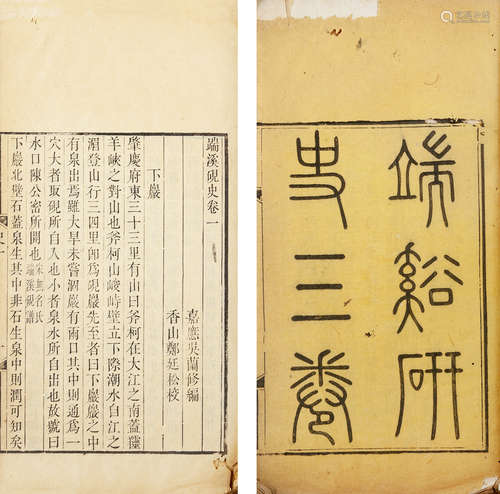 端溪硯史卷一
嘉應吳蘭修編
香山鄭廷松校
下巖
肇慶府東三十三里有山曰斧柯在大江之南蓋靈
羊峽之對山也斧柯山峻峙壁立下際潮水自江之
湄登山行三四里即爲硯巖先至者曰下巖巖之中
有泉出焉雖大旱未嘗涸巖有兩口其中則通爲一
穴大者取硯所自入也小者泉水所自出也故號曰
水口陳公密所開也宋無名氏端溪硯譜
下巖北壁石蓋泉生其中非石生泉中則潤可知矣
端谿研
史三卷